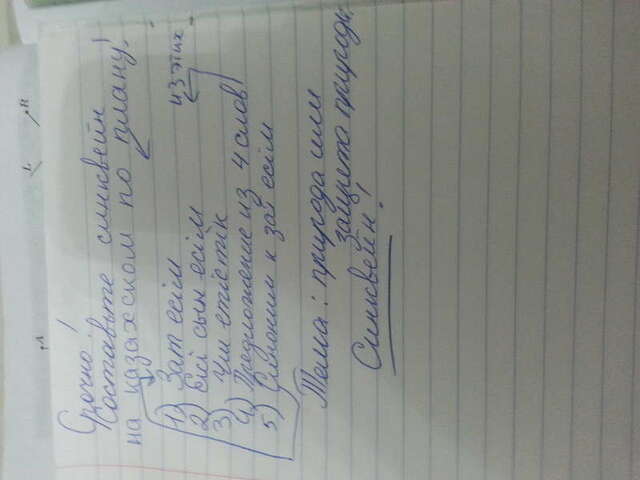 A L B
Срочно!
Составьте синквейн
на казахском по плану!
1) Зат есім
из этих
2) Екі сын есім
3) Үш етістік
4) Предложение из 4 слов
5) Синоним к зат есім
Тема: природа или
защита природы.
Синквейн!